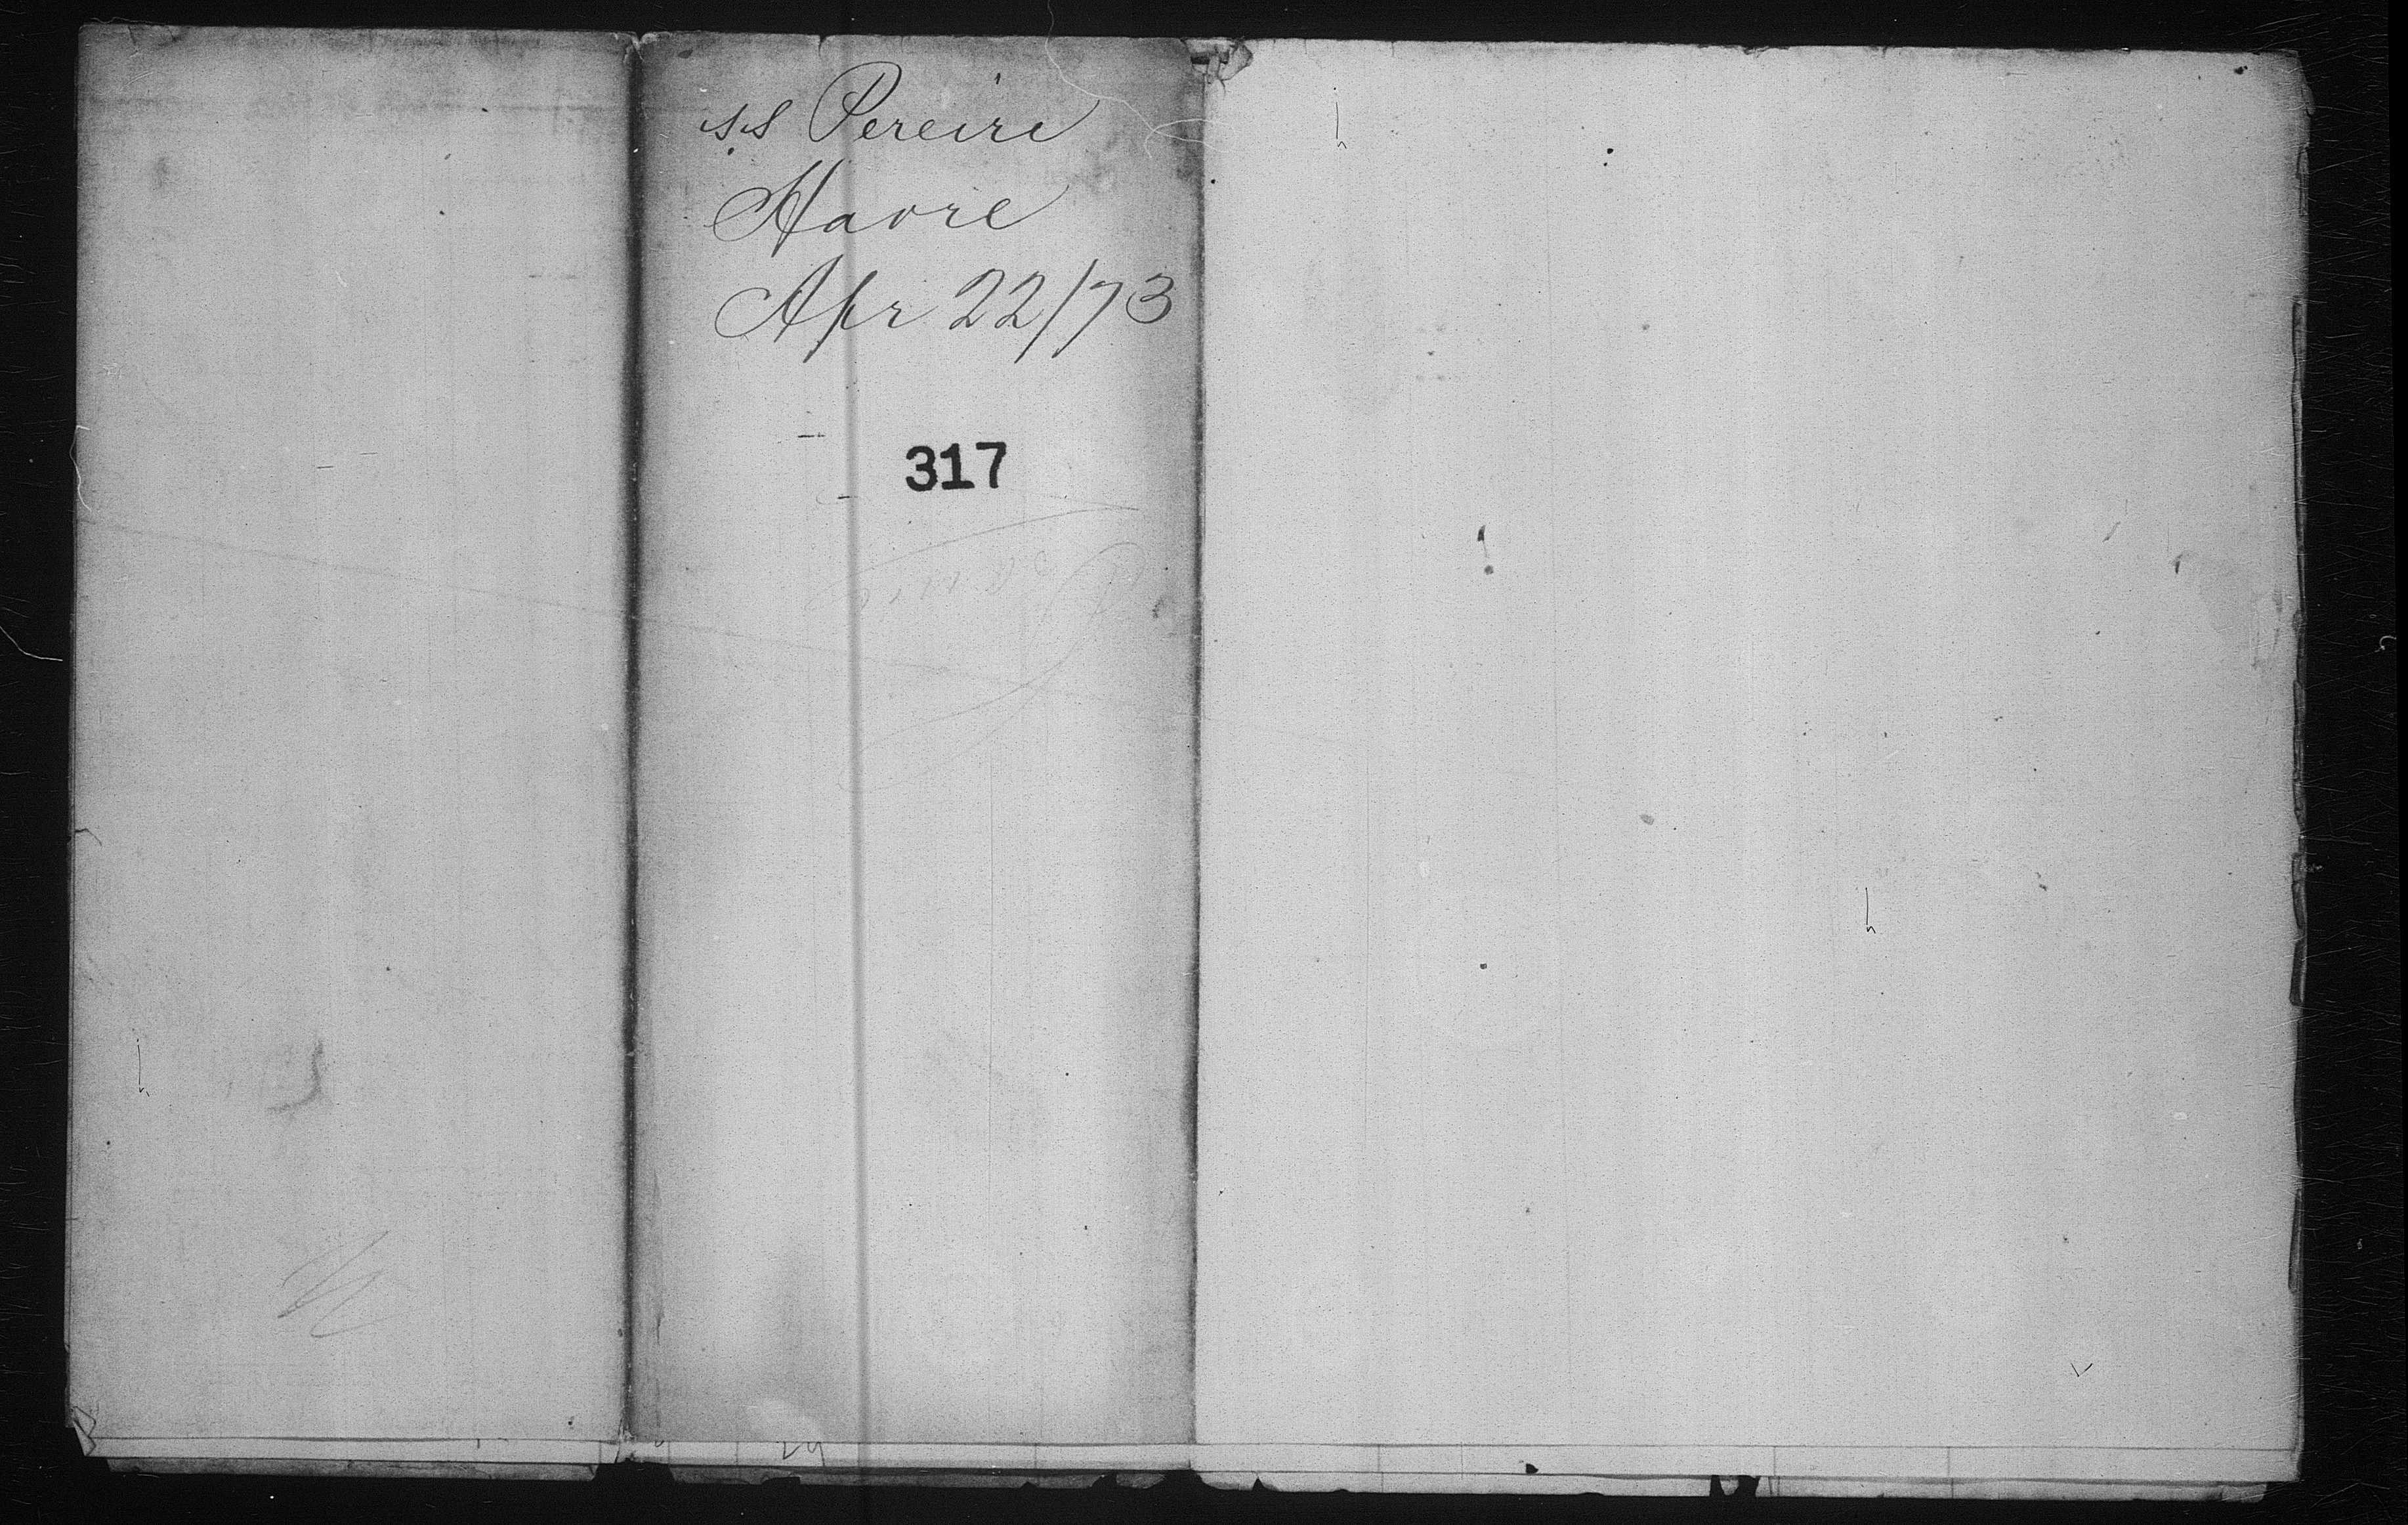 SS Pereire
Havre
Apr 22/73
317